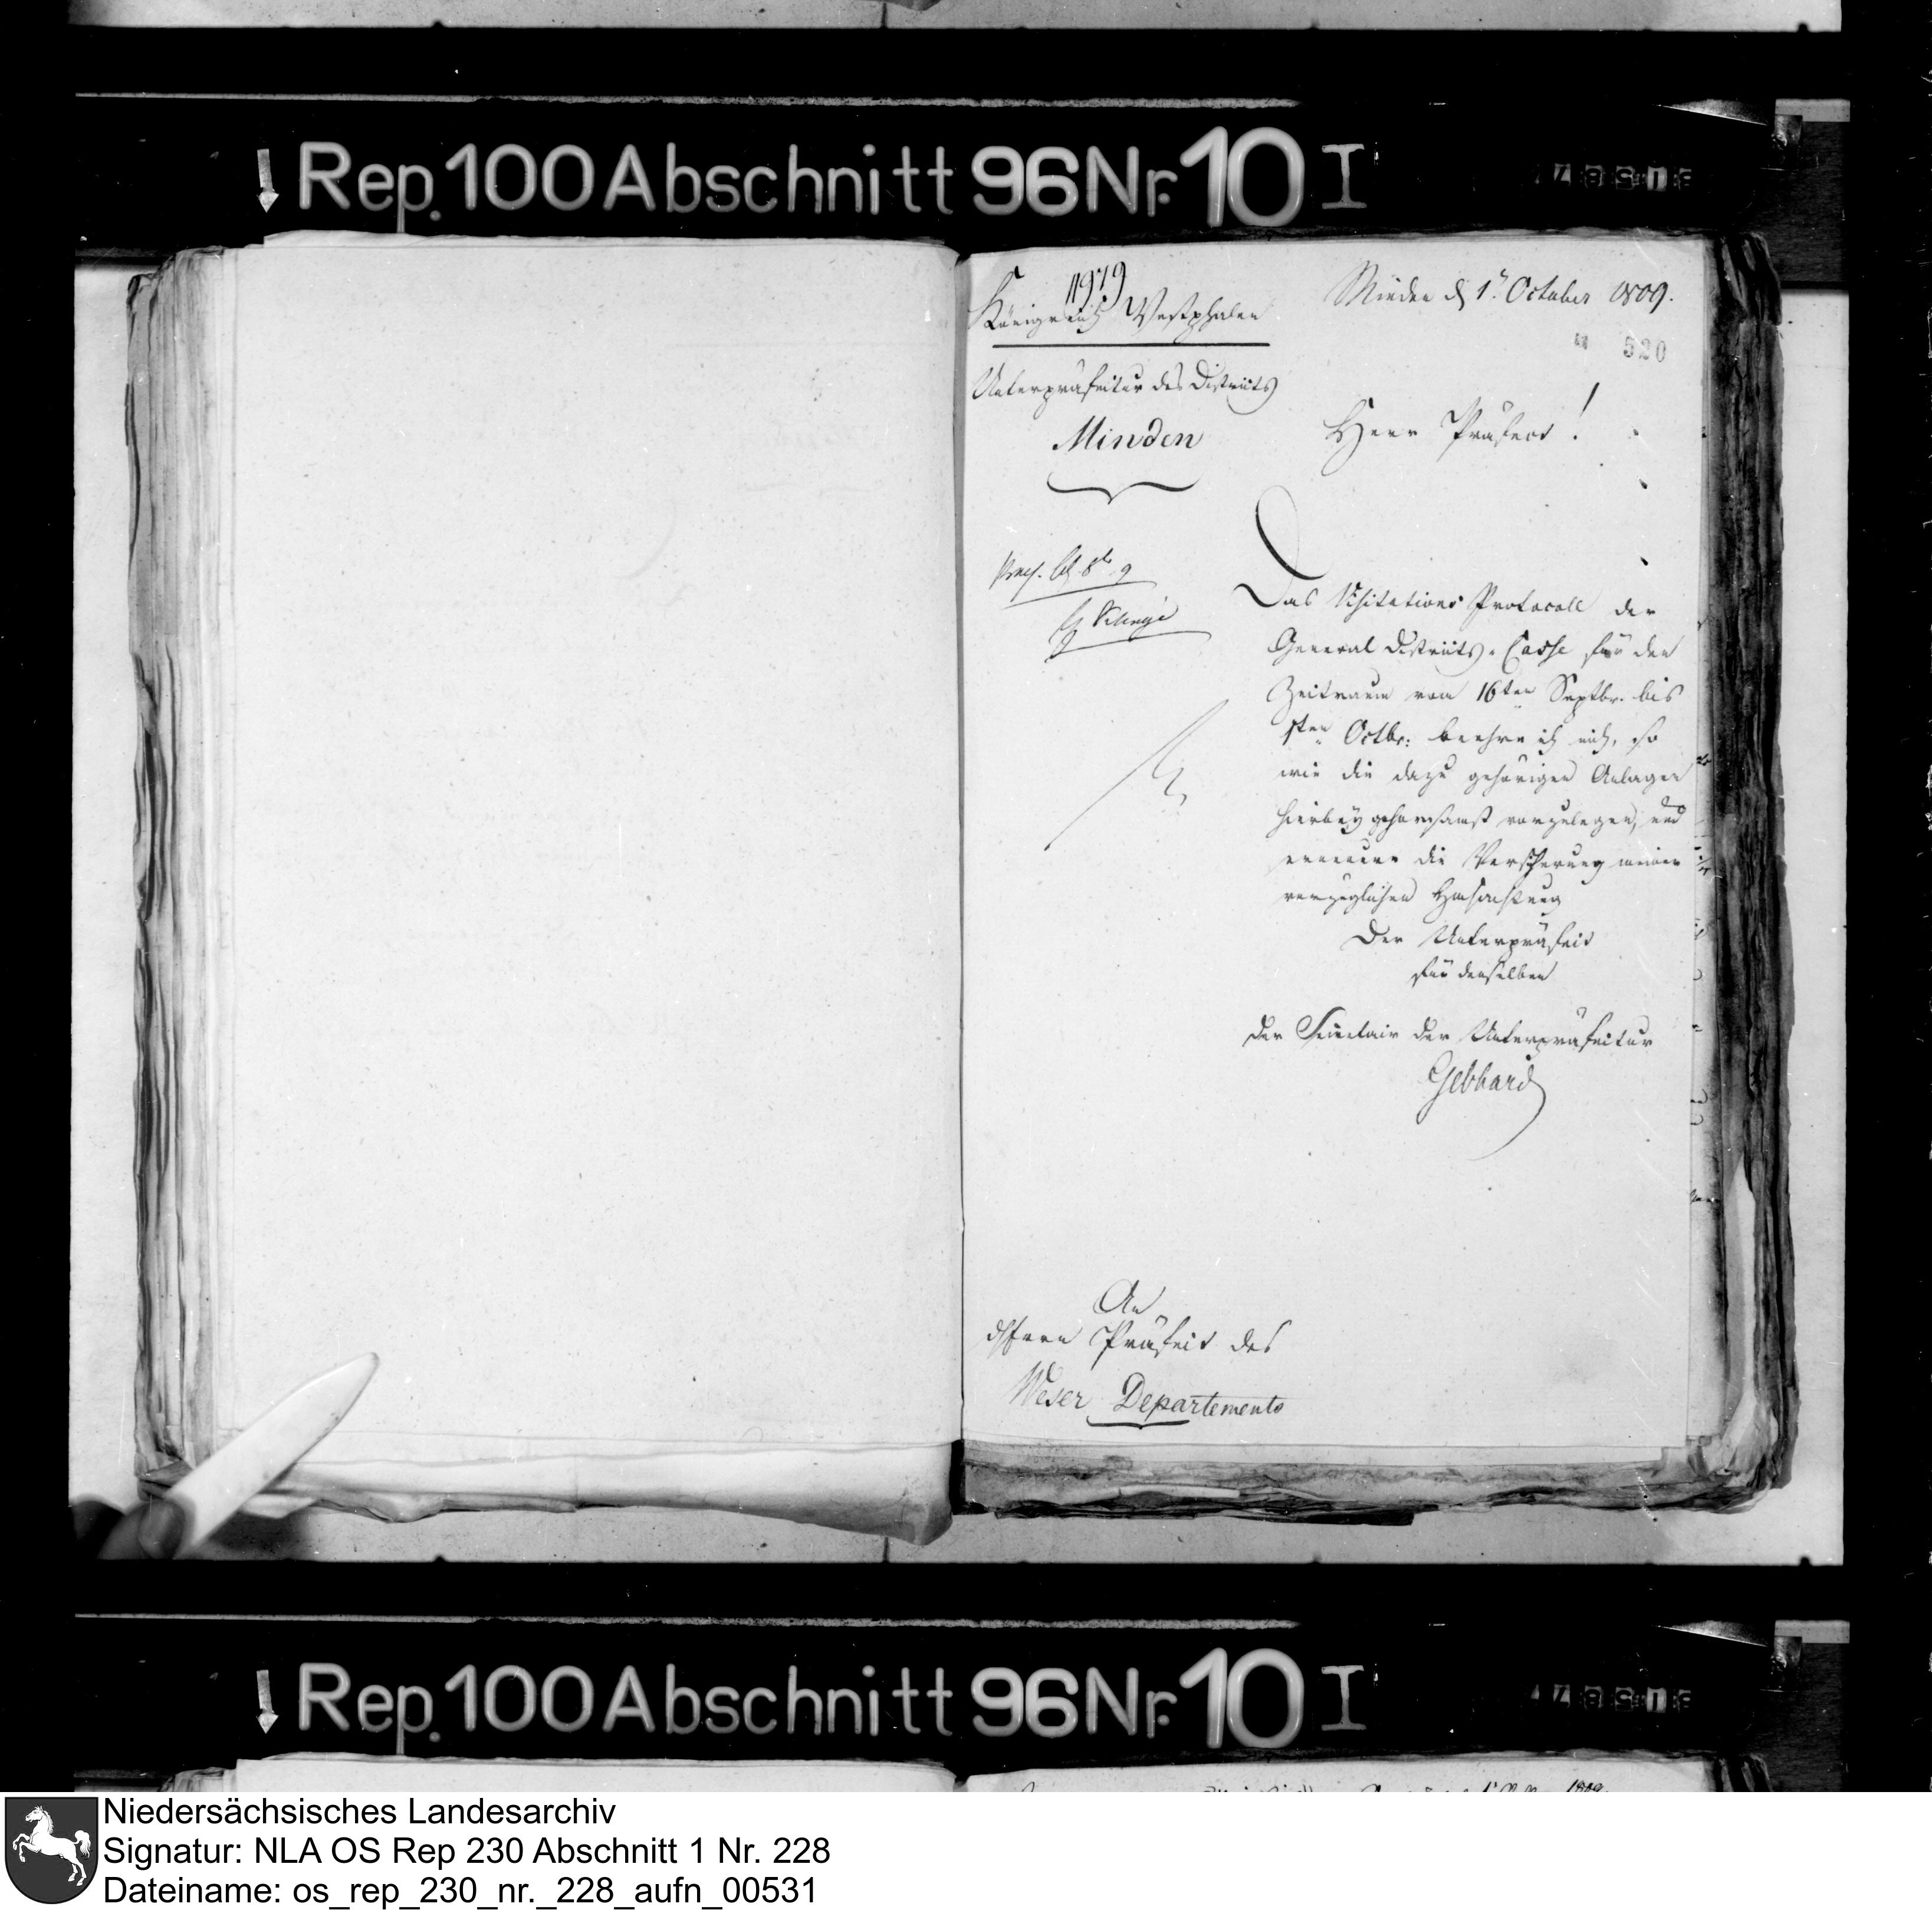 Rep. 100 Abschnitt 96 Nr. 10 I
11979
Königreich Westphalen
Minden d 1t. October 1809.
520
Unterpräfectur des Districts
Minden
Herr Präfect!
Das Visitations Protocoll der
General Districts-Casse für den
Zeitraum vom 16ten Septbr. bis
1sten Octbr: beehre ich mich, so
wie die dazu gehörigen Anlagen
hierbey gehorsamst vorzulegen, und
erneuere die Versicherung meiner
vorzüglichen Hochachtung
Der Unterpräfect
für denselben
der Secretair der Unterpräfectur
Gebhard
An
d Herrn Präfect des
Weser Departements
Rep. 100 Abschnitt 96 Nr. 10 I
Niedersächsisches Landesarchiv
Signatur: NLA OS Rep 230 Abschnitt 1 Nr. 228
Dateiname: os_rep_230_nr._228_aufn_00531